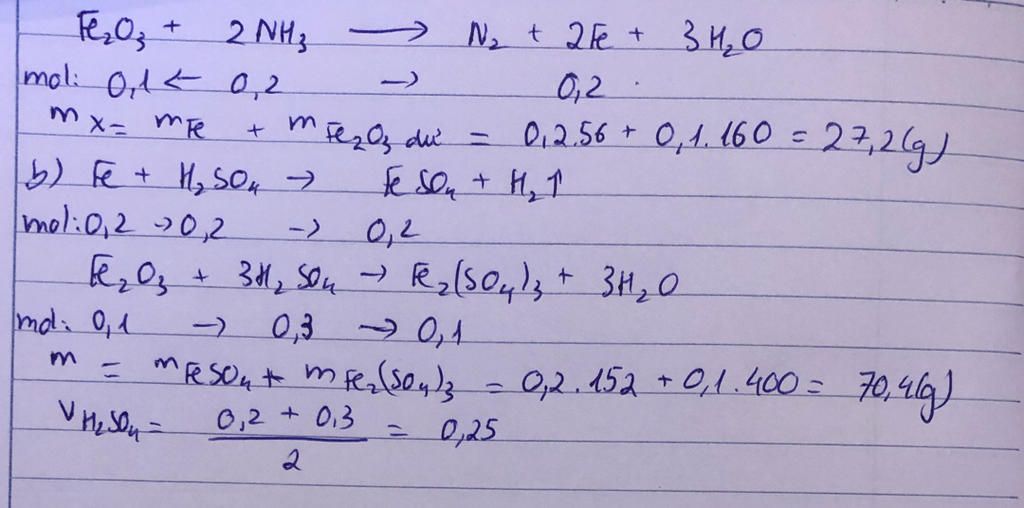 Fe₂O₃ + 2NH₃ → N₂ + 2Fe + 3H₂O
mol: 0,1 ← 0,2 → 0,2
m X = m Fe + m Fe₂O₃ dư = 0,2.56 + 0,1.160 = 27,2(g)
b) Fe + H₂SO₄ → FeSO₄ + H₂↑
mol: 0,2 → 0,2 → 0,2
Fe₂O₃ + 3H₂SO₄ → Fe₂(SO₄)₃ + 3H₂O
mol: 0,1 → 0,3 → 0,1
m = m FeSO₄ + m Fe₂(SO₄)₃ = 0,2.152 + 0,1.400 = 70,4(g)
V H₂SO₄ = (0,2 + 0,3)/2 = 0,25